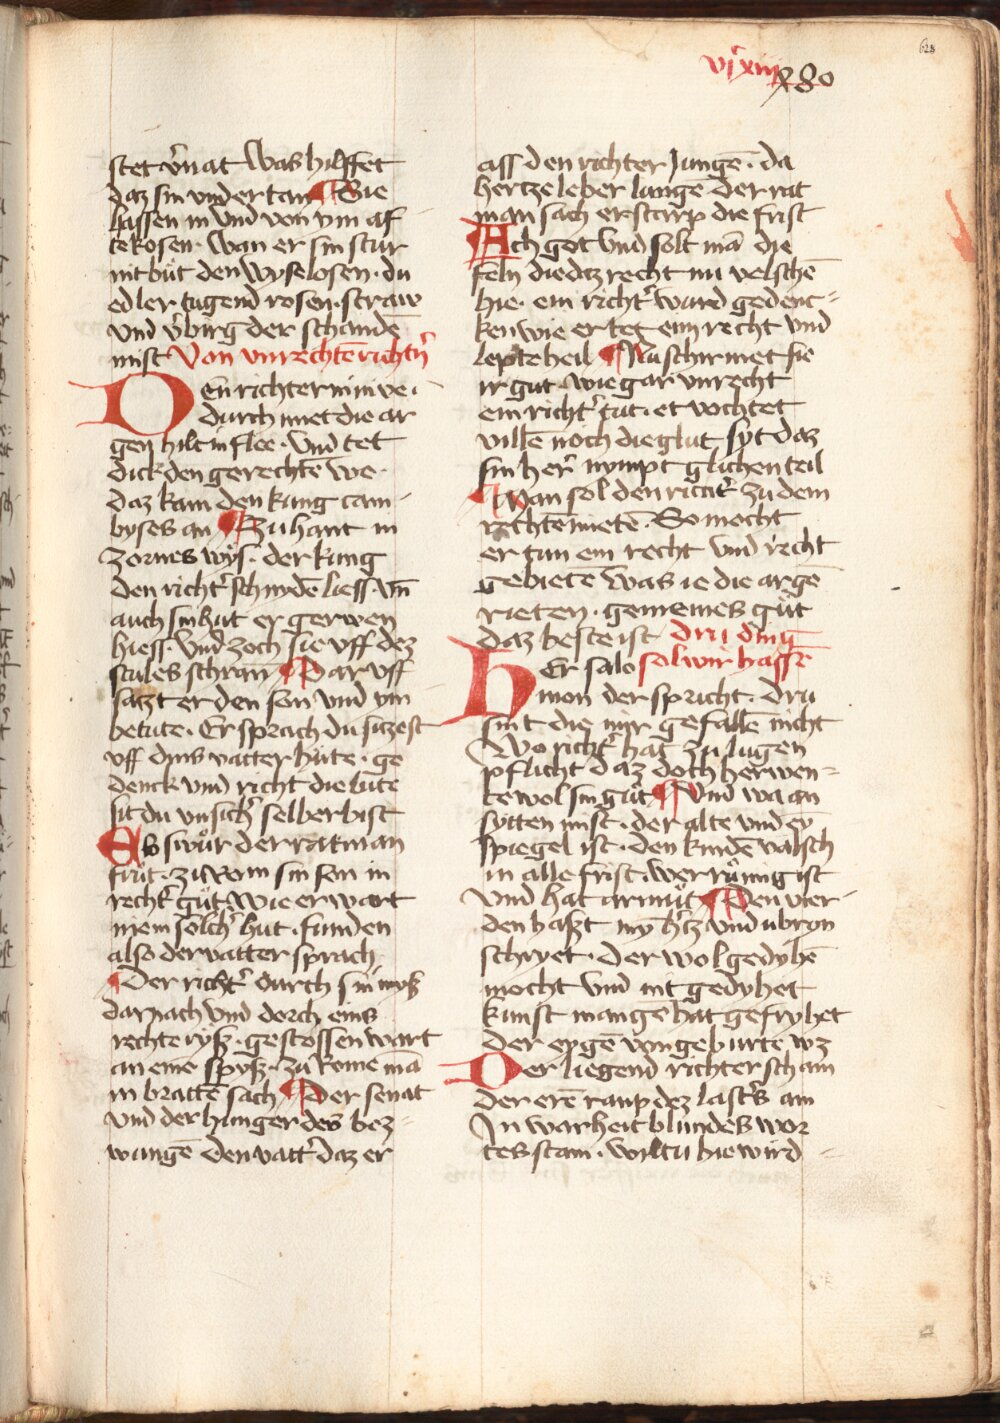 628
vjcxiiij
280
stet v̄nat Was hilffet
daz sin vndertan ¶ Sie
lassen in vnd von ym af
tekosen · Wan er sin stur
nit but den wyselosen · du
edler tugend rosen · straw
vnd v̄birg der schandē
mist Von vnrechtē richtn̄
Den richter nin ve ·
durch miet die ar
gen hilt in flee · Vnd tet
dick den gerechtē we ·
daz kam den kung cam
byses an ¶ Zu hant in
zornes wys · der kung
den richt' schindē liess · vn̄
auch sin hut er gerwen
hiess · Vnd zoch sie vff dez
stules schran ¶ Dar vff
sazt er den son vnd ym
betute · Er sprach du sizest
vff dins vatter hute · ge
denck vnd richt die lute
sit du vnsich' selber bist
Es swůr der ratman
frůt · zu Rom sin son in
recht' gůt · wie er wart
niem solch' hut · funden
also der vatter sprach
¶ Der richt' durch sin myß
darnach vnd dorch eins
rechte ryß · gestossen wart
an eine spyß · zů Rome mā
in brattē sach ¶ Der senat
vnd der hunger des bez
wungē den vatt' daz er
ass den richter Jungē · da
hertze leber lunge der rat
man sach er starp die frist
Ach got vnd solt mā die
feln die daz recht nu velschē
hie · ein richt' ward gedenc
ken wie er tet eim recht vnd
lepte heil ¶ Nu schirmet sie
ir gut · wie gar vnrecht
ein richt' tut · et vochtet
villē noch die glut syt daz
sin her' nympt glichen teil
¶ Man sol den richt' zu dem
rechtē mietē · So mocht
er tun ein recht vnd recht
gebietē Was ie die argē
rieten · gemeines gůt
daz beste ist Dru ding
HEr salo sol wir hassē
mon der spricht · dru
sint die mir gefallē nicht
Wo richt' hat zu lugen
pflicht daz doch herwen
te wol sin gůt ¶ Vnd wa an
sytten mist · der alte vnd ey
spiegel ist · den kindē valsch
in alle frist · wer růmig ist
Vnd hat armůt ¶ Den vier
den haßt my h'tz vnd vbron
schryet · Der wol gedyhē
mocht vnd nit gedyhet
kunst mangē hat gefryhet
der eygē von geburte wz
Der liegend richter scham
der erē raup dez last's am
In warheit blundes wor
tes stam · wiltu hie wird